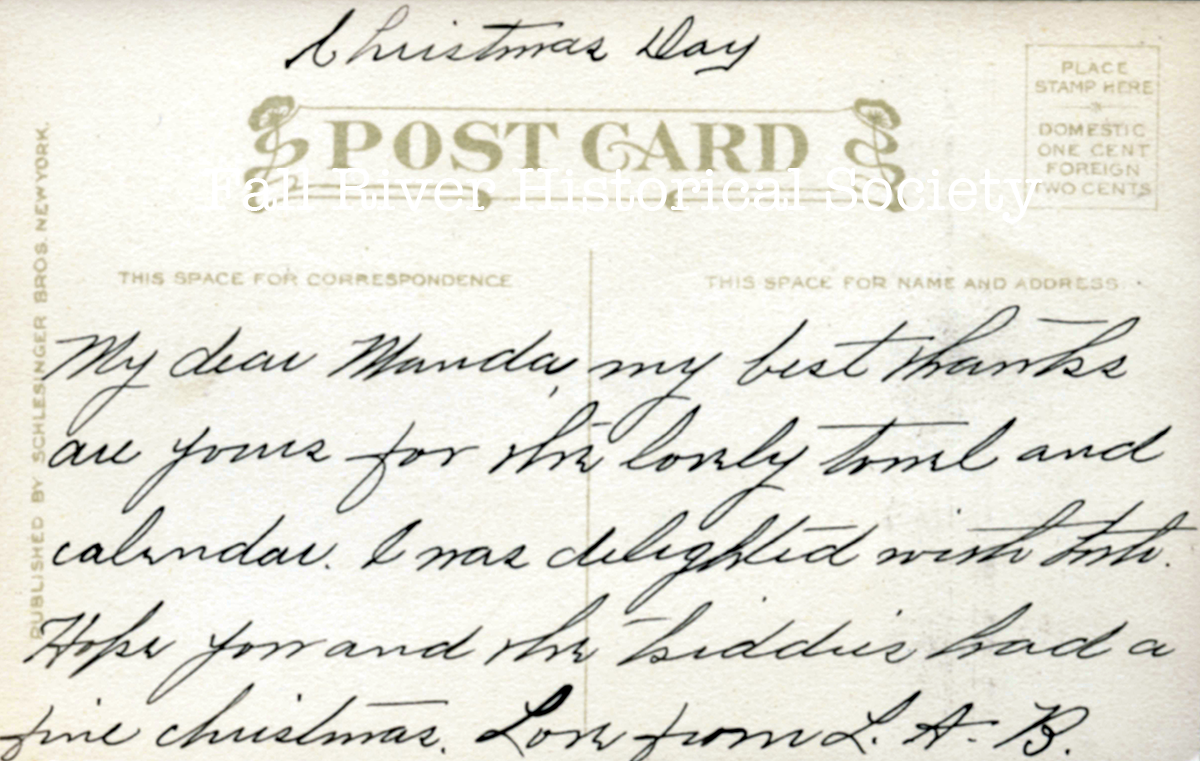 Christmas Day
POST CARD
Fall River Historical Society
PLACE
STAMP HERE
DOMESTIC
ONE CENT
FOREIGN
TWO CENTS
PUBLISHED BY SCHLESINGER BROS. NEW YORK.
THIS SPACE FOR CORRESPONDENCE
THIS SPACE FOR NAME AND ADDRESS
My dear Manda, my best thanks
are yours for the lovely towel and
calendar. I was delighted with both.
Hope you and the kiddies had a
fine christmas. Love from L. A. B.